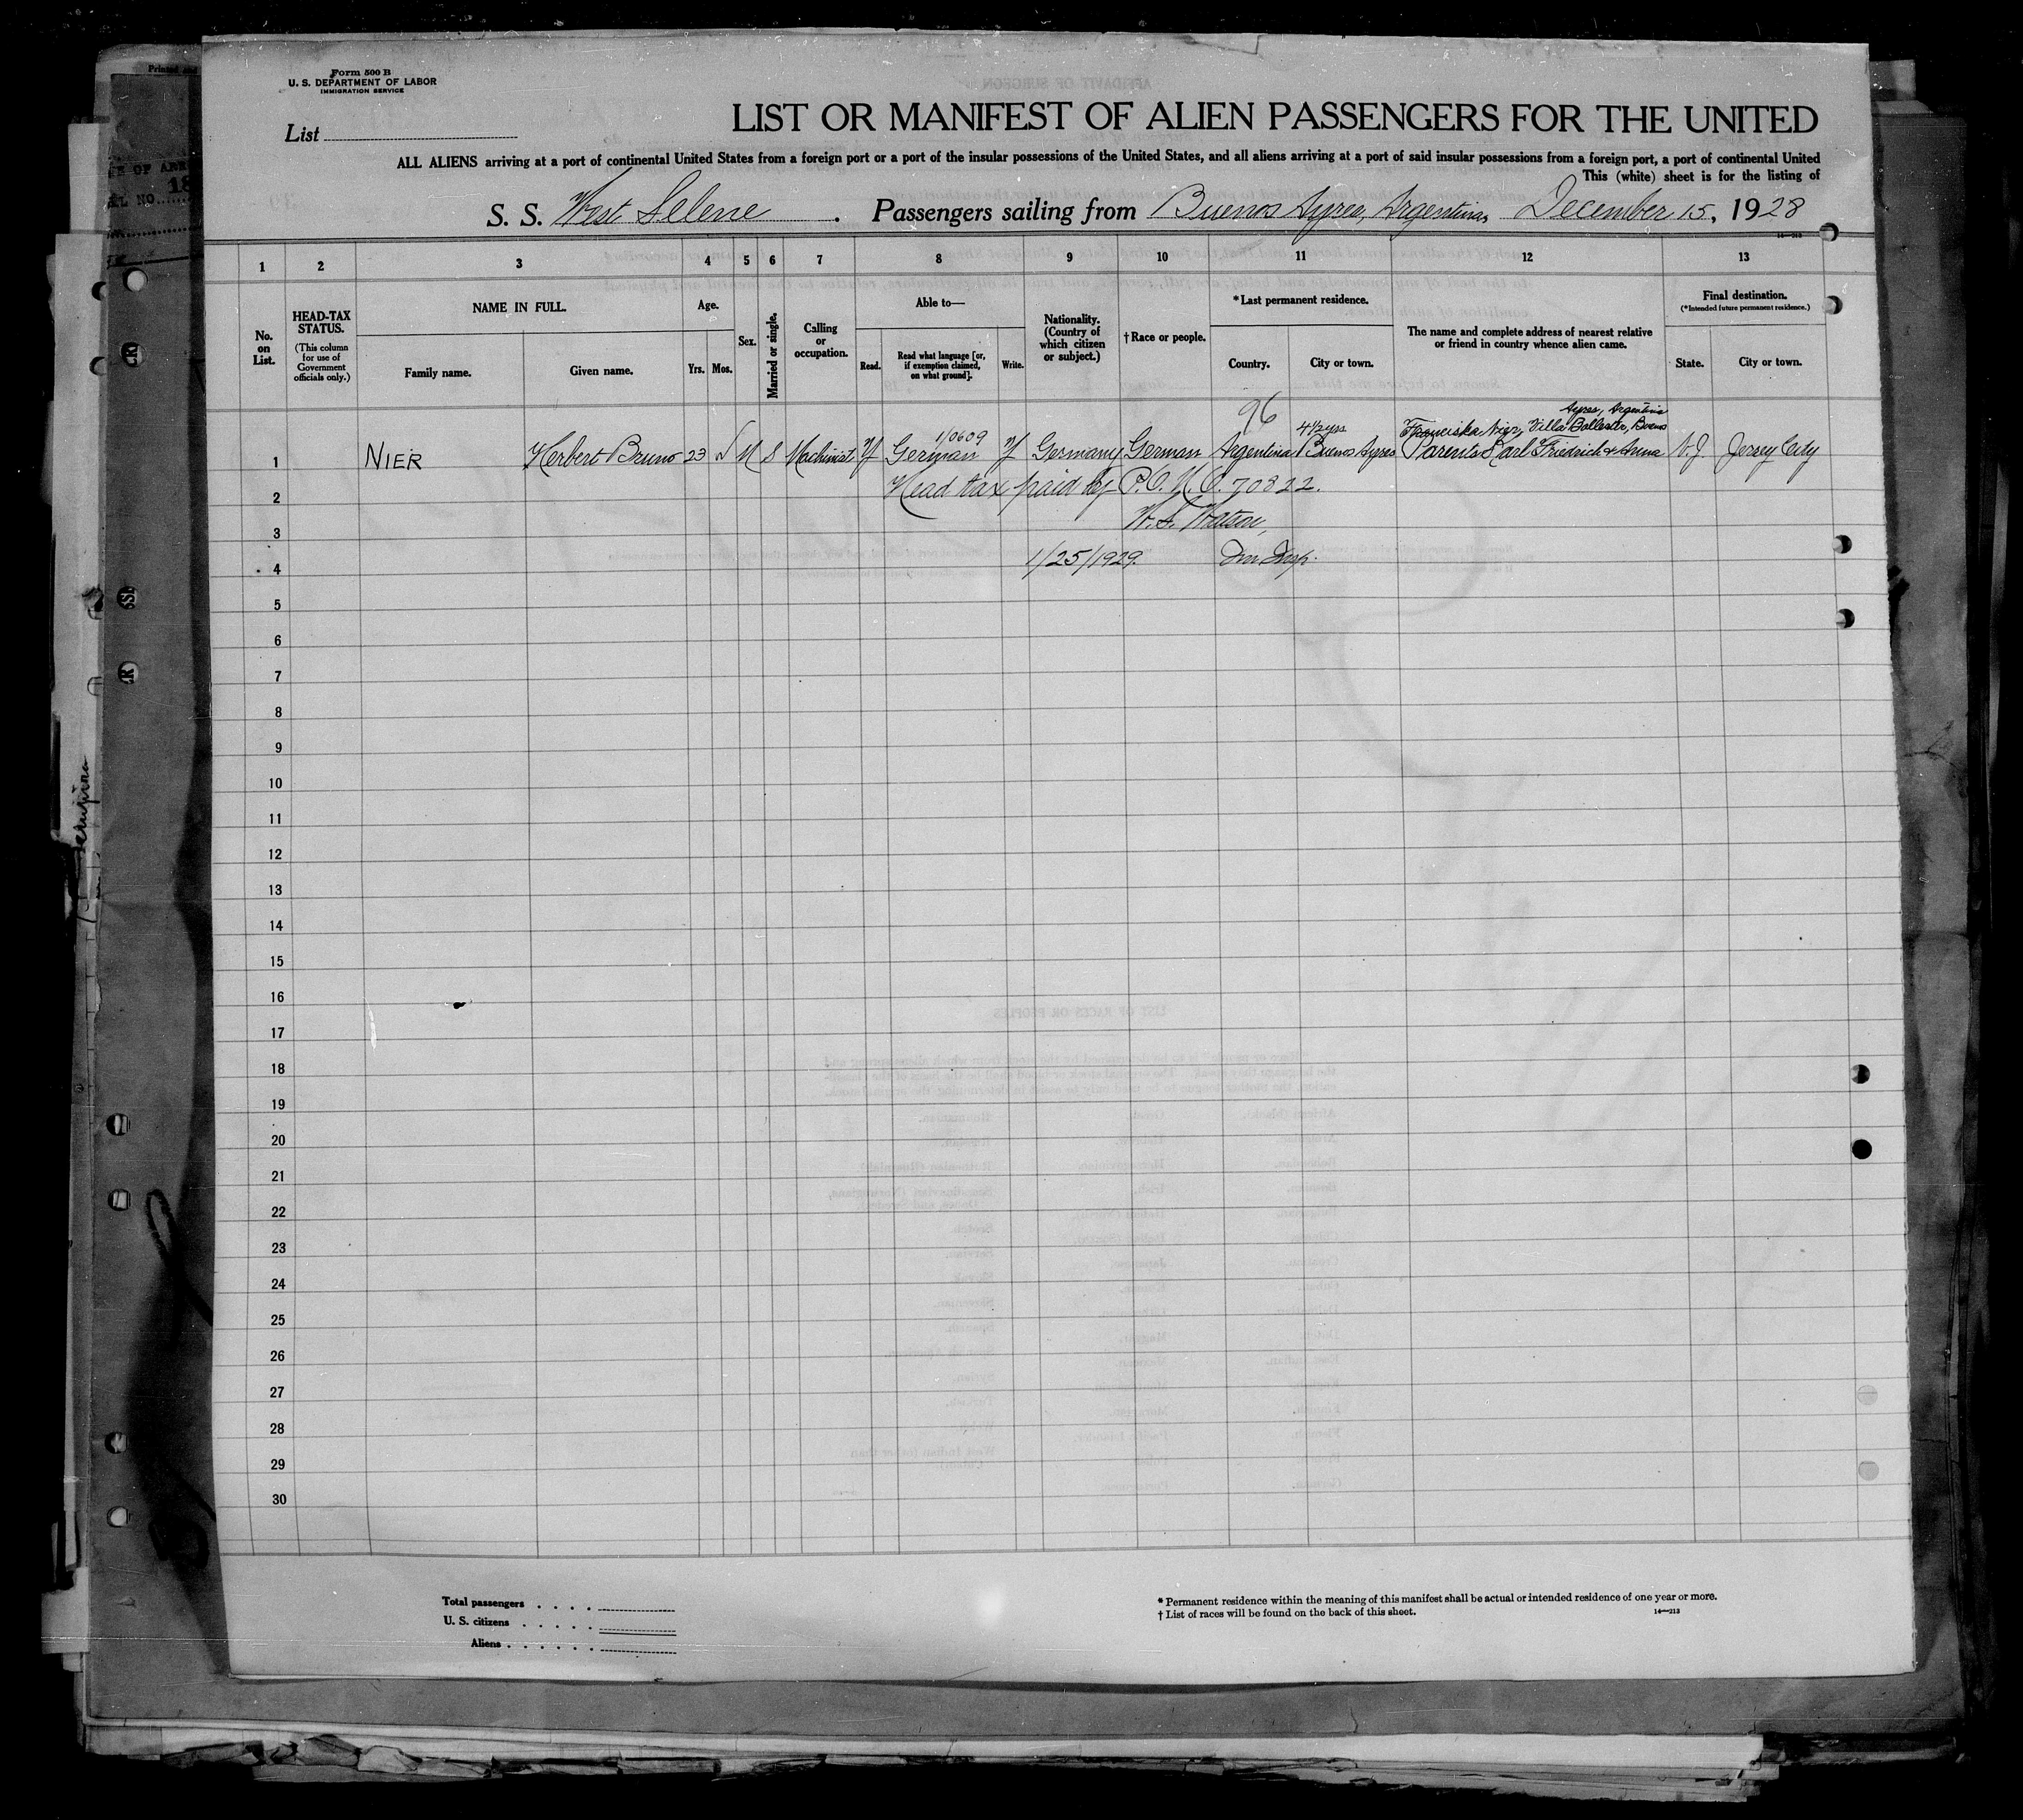 Form 500 B
U. S. DEPARTMENT OF LABOR
IMMIGRATION SERVICE
List
LIST OR MANIFEST OF ALIEN PASSENGERS FOR THE UNITED
ALL ALIENS arriving at a port of continental United States from a foreign port or a port of the insular possessions of the United States, and all aliens arriving at a port of said insular possessions from a foreign port, a port of continental United
This (white) sheet is for the listing of
S. S. West Selene. Passengers sailing from Buenos Ayres, Argentina, December 15, 1928
14—213
1 2 3 4 5 6 7 8 9 10 11 12 13
No. on List.
HEAD-TAX STATUS.
(This column for use of Government officials only.)
NAME IN FULL.
Family name. Given name.
Age.
Yrs. Mos.
Sex.
Married or single.
Calling or occupation.
Able to—
Read. Read what language [or, if exemption claimed, on what ground]. Write.
Nationality. (Country of which citizen or subject.)
† Race or people.
*Last permanent residence.
Country. City or town.
The name and complete address of nearest relative or friend in country whence alien came.
Final destination.
(*Intended future permanent residence.)
State. City or town.
96
Ayres, Argentina
1/0609 4 1/2 yrs Franciska Nier, Villa Ballester, Buenos
1 NIER Herbert Bruno 23 M S Machinist Y German Y Germany German Argentina Buenos Ayres Parents Karl Friedrich & Anna N.J. Jersey City
2 Head tax paid by P.O. M.O. 70822.
3 W. S. Watson,
4 1/25/1929. Imm Insp.
5
6
7
8
9
10
11
12
13
14
15
16
17
18
19
20
21
22
23
24
25
26
27
28
29
30
Total passengers
U. S. citizens
Aliens
* Permanent residence within the meaning of this manifest shall be actual or intended residence of one year or more.
† List of races will be found on the back of this sheet. 14—213